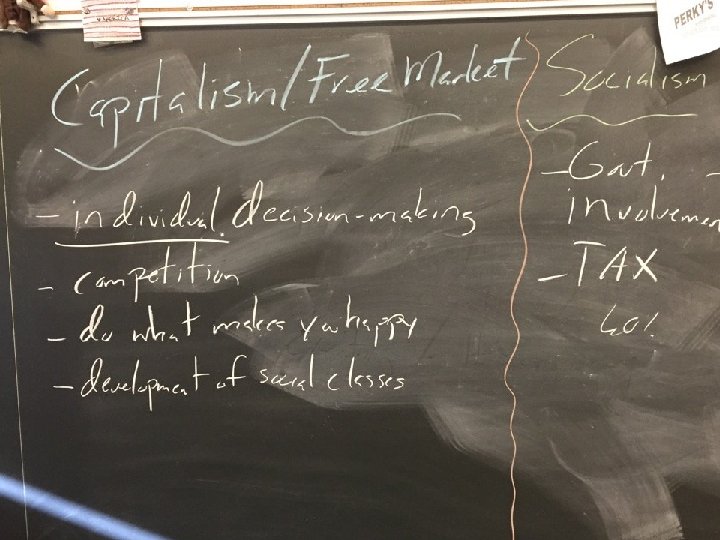 PERKY'S
Capitalism/Free Market
- individual decision-making
- competition
- do what makes you happy
- development of social classes
Socialism
- Gov't. -
involvemen
- TAX
60%